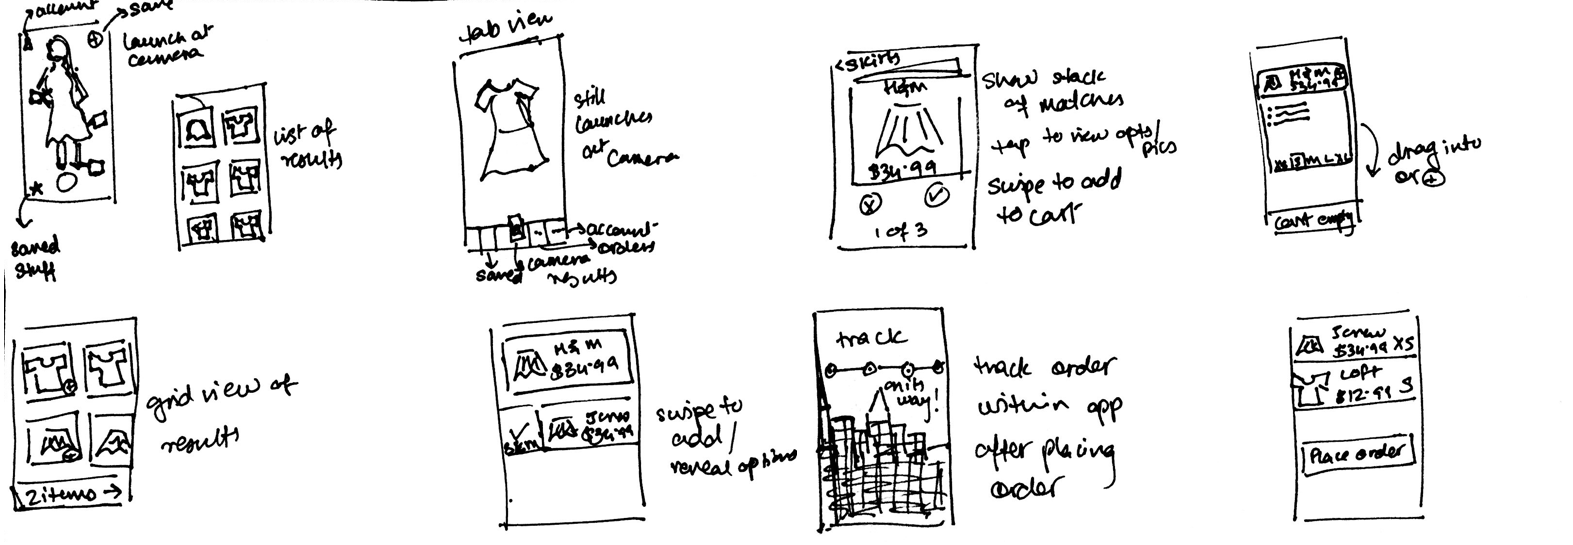 account
save
launch at
camera
saved
stuff
list of
results
tab view
still
launches
at camera
account
orders
saved
camera
results
<skirts
H&M
$34.99
1 of 3
show stack
of matches
tap to view opts/
pics
swipe to add
to cart
H&M
$34.99
XS S M L XL
cart empty
drag into
or +
2 items →
grid view of
results
H&M
$34.99
S L M
Jcrew
$34.99
swipe to
add/
reveal options
track
on its
way!
track order
within app
after placing
order
Jcrew
$34.99 XS
Loft
$12.99 S
Place order